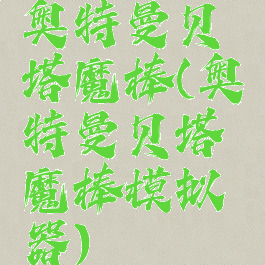 奥特曼贝
塔魔棒(奥
特曼贝塔
魔棒模拟
器)